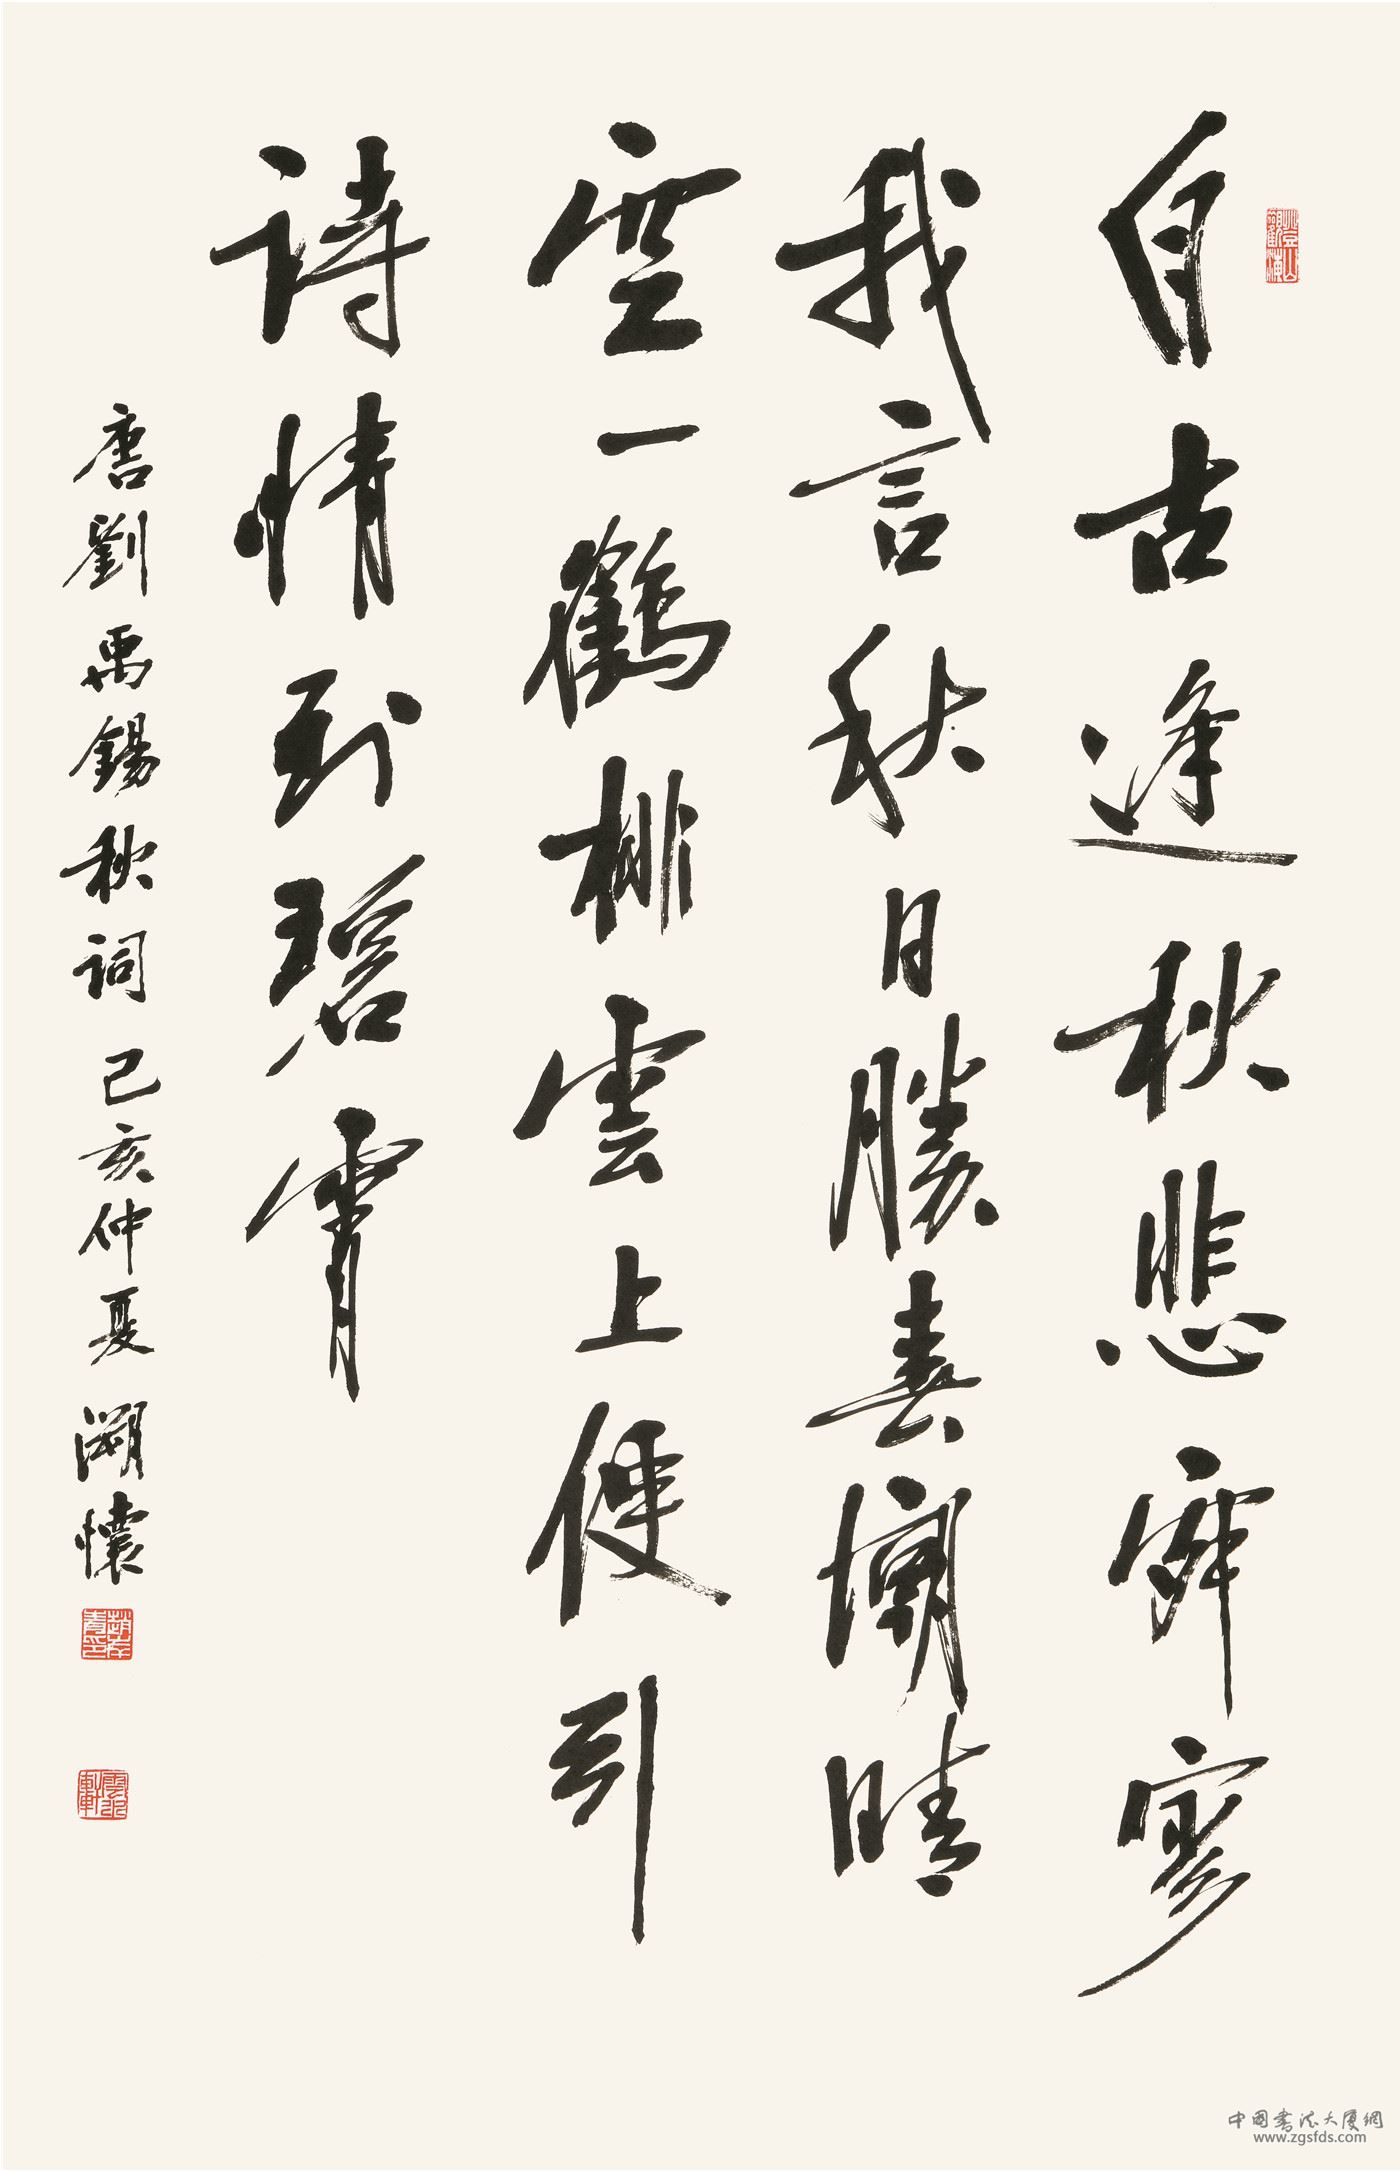 登山觀海
自古逢秋悲寂寥
我言秋日勝春朝晴
空一鶴排雲上便引
詩情到碧霄
唐劉禹錫秋詞 己亥仲夏 溯懷
雲水軒
中国書法大厦網
www.zgsfds.com